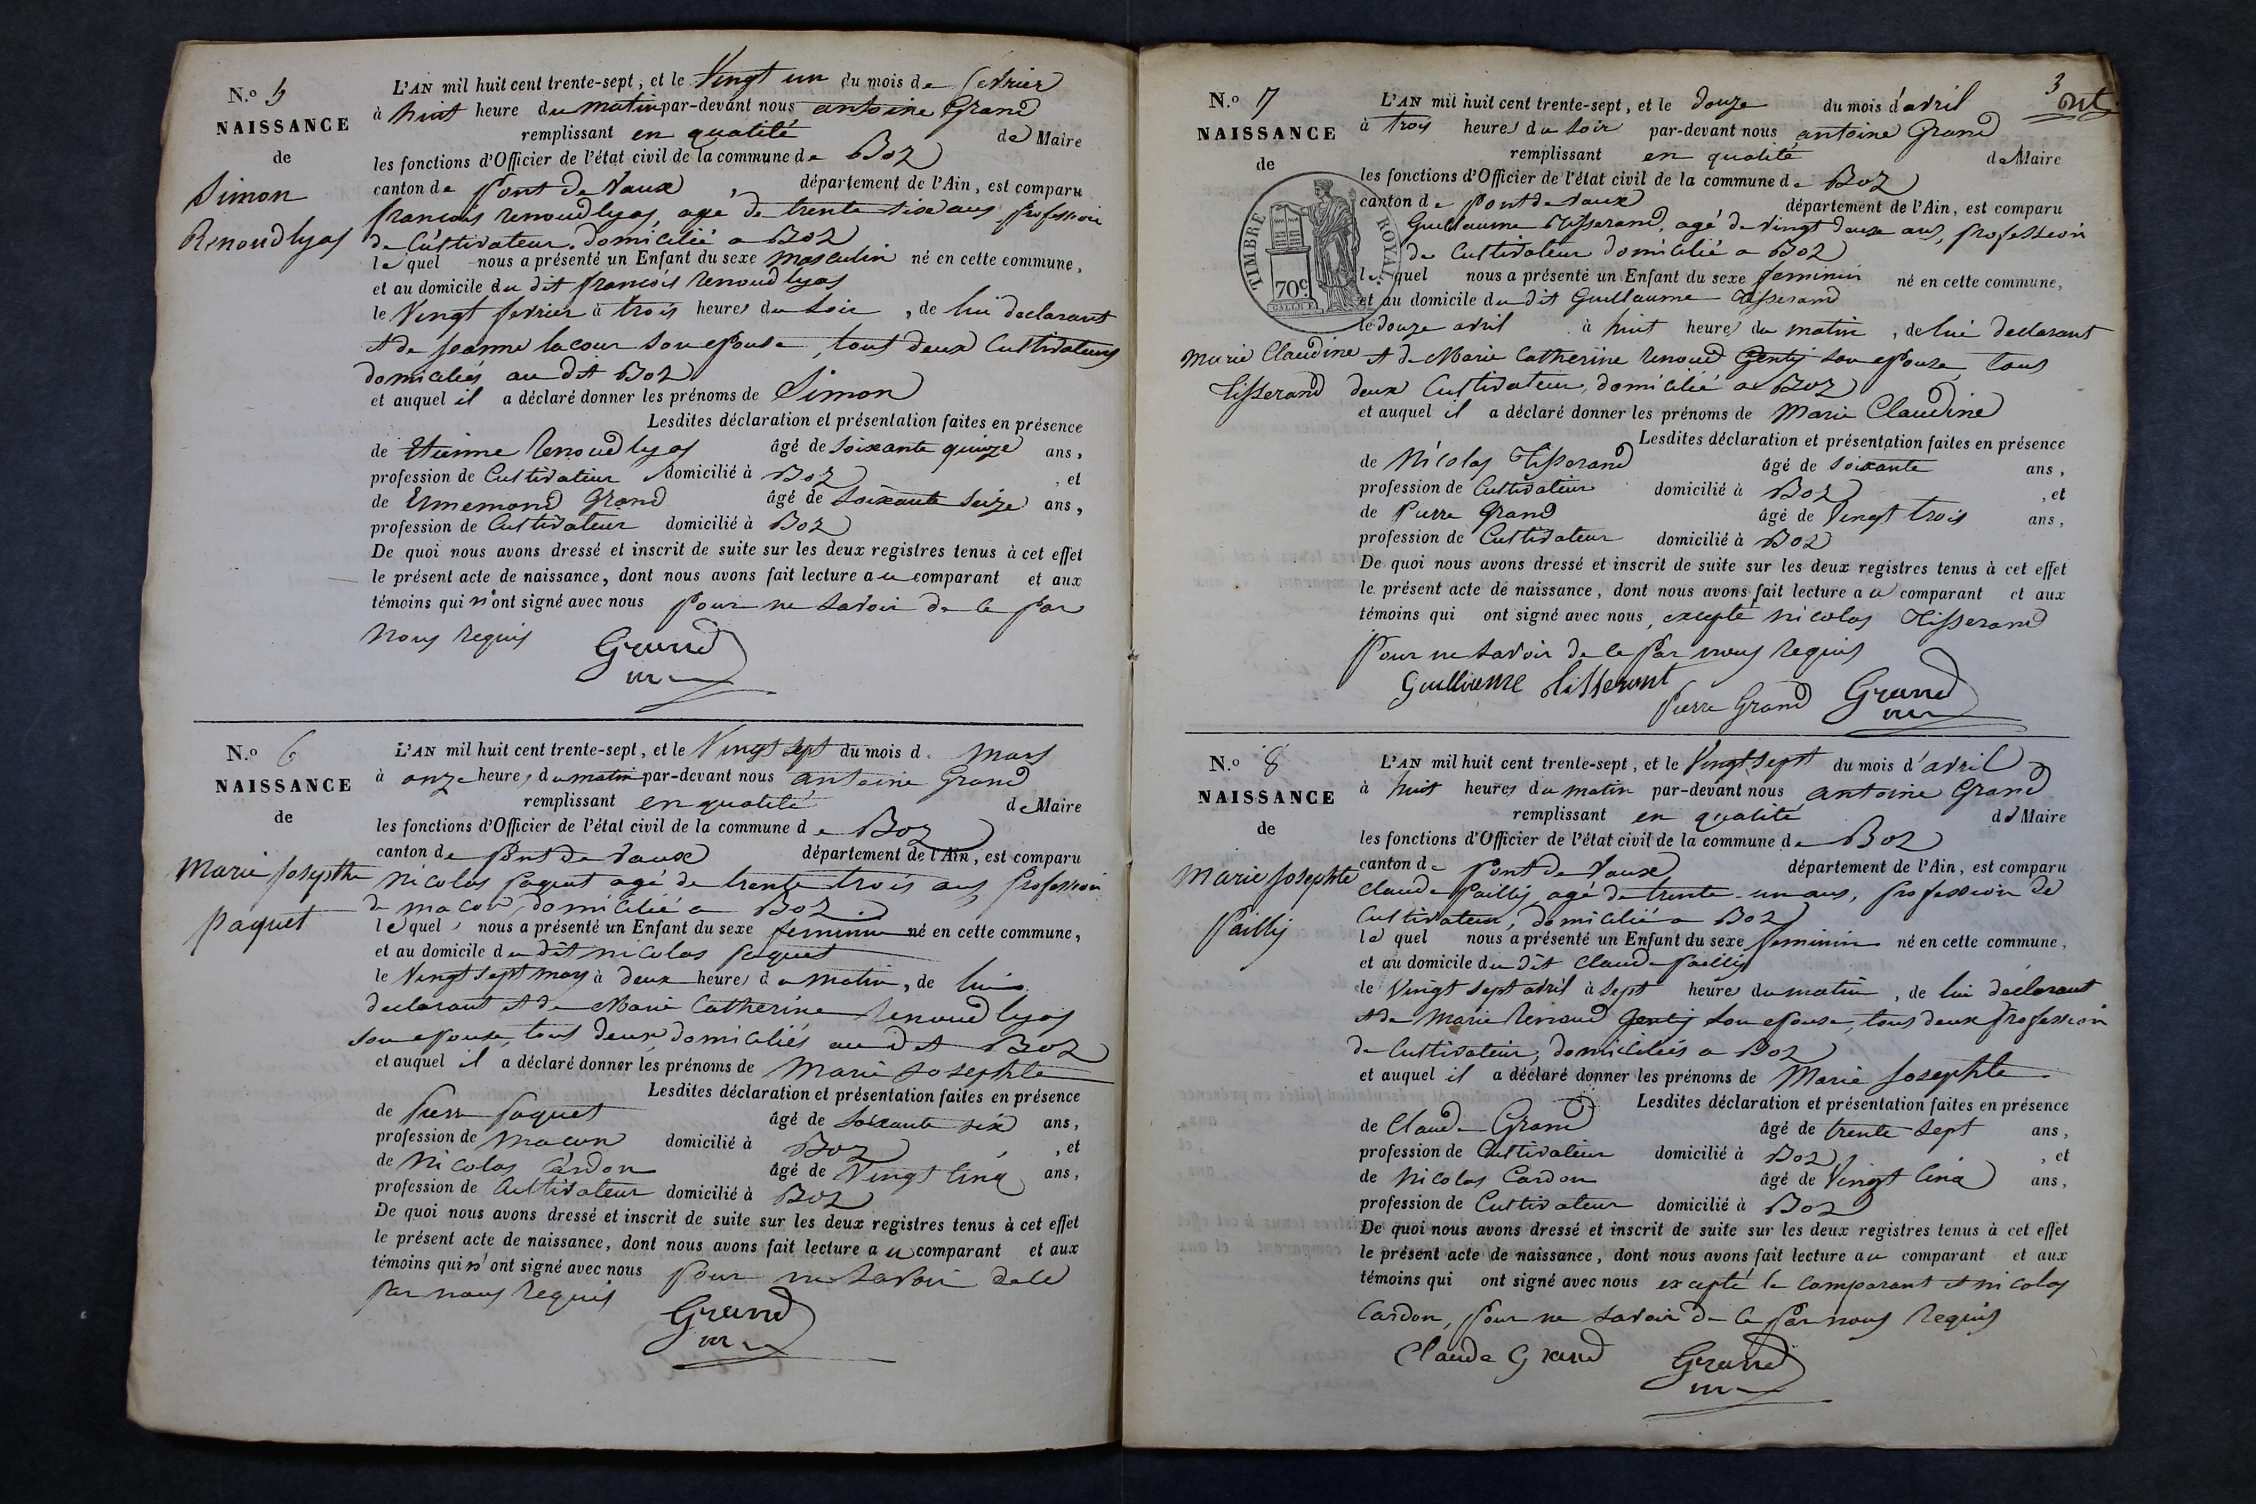 N.o 5
NAISSANCE
de
Simon
Renoud lyas
L'AN mil huit cent trente-sept, et le Vingt un du mois de fevrier
à huit heure du matin par-devant nous antoine Grand
remplissant en qualité de Maire
les fonctions d'Officier de l'état civil de la commune de Boz
canton de Pont de Vaux, département de l'Ain, est comparu
francois renoud lyas, agé de trente sixe ans, profession
de Cultivateur, domicilié a Boz
lequel nous a présenté un Enfant du sexe masculin né en cette commune,
et au domicile du dit francois renoud lyas
le Vingt fevrier à trois heures du soir, de lui declarant
et de jeanne lacour son epouse, tout deux Cultivateurs
domiciliés au dit Boz
et auquel il a déclaré donner les prénoms de Simon
Lesdites déclaration et présentation faites en présence
de Etienne Renoud lyas âgé de soixante quinze ans,
profession de Cultivateur domicilié à Boz, et
de Ennemond Grand âgé de soixante seize ans,
profession de Cultivateur domicilié à Boz
De quoi nous avons dressé et inscrit de suite sur les deux registres tenus à cet effet
le présent acte de naissance, dont nous avons fait lecture au comparant et aux
témoins qui n'ont signé avec nous pour ne savoir de ce par
nous requis
Grand
N.o 6
NAISSANCE
de
Marie josephte
paquet
L'AN mil huit cent trente-sept, et le Vingt sept du mois d. mars
à onze heures du matin par-devant nous antoine Grand
remplissant en qualité de Maire
les fonctions d'Officier de l'état civil de la commune de Boz
canton de Pont de Vaux département de l'Ain, est comparu
Nicolas paquet agé de trente trois ans, profession
de macon, domicilié a Boz
lequel, nous a présenté un Enfant du sexe feminin né en cette commune,
et au domicile du dit nicolas paquet
le Vingt sept mars à deux heures du matin, de lui
declarant et de Marie Catherine Renoud lyas
son epouse, tous deux domiciliés au dit Boz
et auquel il a déclaré donner les prénoms de Marie josephte
Lesdites déclaration et présentation faites en présence
de pierre paquet âgé de soixante six ans,
profession de macon domicilié à Boz, et
de Nicolas Cardon âgé de Vingt Cinq ans,
profession de Cultivateur domicilié à Boz
De quoi nous avons dressé et inscrit de suite sur les deux registres tenus à cet effet
le présent acte de naissance, dont nous avons fait lecture au comparant et aux
témoins qui n'ont signé avec nous pour ne savoir de ce
par nous requis
Grand
3
N.o 7
NAISSANCE
de
TIMBRE ROYAL
70c.
Marie Claudine
Tisserand
L'AN mil huit cent trente-sept, et le douze du mois d'avril
à trois heures du soir par-devant nous antoine Grand
remplissant en qualité de Maire
les fonctions d'Officier de l'état civil de la commune de Boz
canton de Pont de Vaux département de l'Ain, est comparu
Guillaume Tisserand, agé de vingt deux ans, profession
de Cultivateur domicilié a Boz
lequel nous a présenté un Enfant du sexe feminin né en cette commune,
et au domicile du dit Guillaume Tisserand
le douze avril à huit heures du matin, de lui declarant
et de Marie Catherine renoud Gentij son epouse, tous
deux Cultivateur, domicilié a Boz
et auquel il a déclaré donner les prénoms de Marie Claudine
Lesdites déclaration et présentation faites en présence
de Nicolas Tisserand âgé de soixante ans,
profession de Cultivateur domicilié à Boz, et
de Pierre Grand âgé de Vingt trois ans,
profession de Cultivateur domicilié à Boz
De quoi nous avons dressé et inscrit de suite sur les deux registres tenus à cet effet
le présent acte de naissance, dont nous avons fait lecture au comparant et aux
témoins qui ont signé avec nous, excepté nicolas Tisserand
Pour ne savoir de ce par nous requis
Guilliaume tisserant
Pierre Grand Grand
N.o 8
NAISSANCE
de
Marie josephte
Paillij
L'AN mil huit cent trente-sept, et le Vingt sept du mois d'avril
à huit heures du matin par-devant nous antoine Grand
remplissant en qualité de Maire
les fonctions d'Officier de l'état civil de la commune de Boz
canton de Pont de Vaux département de l'Ain, est comparu
Claude Paillij agé de trente un ans, profession de
Cultivateur, domicilié a Boz
lequel nous a présenté un Enfant du sexe feminin né en cette commune,
et au domicile du dit Claude paillij
le Vingt sept avril à sept heures du matin, de lui declarant
et de Marie Renoud Gentij son epouse, tous deux profession
de Cultivateur, domiciliés a Boz
et auquel il a déclaré donner les prénoms de Marie josephte
Lesdites déclaration et présentation faites en présence
de Claude Grand âgé de trente sept ans,
profession de Cultivateur domicilié à Boz, et
de Nicolas Cardon âgé de Vingt Cinq ans,
profession de Cultivateur domicilié à Boz
De quoi nous avons dressé et inscrit de suite sur les deux registres tenus à cet effet
le présent acte de naissance, dont nous avons fait lecture au comparant et aux
témoins qui ont signé avec nous excepté le comparant et nicolas
Cardon, pour ne savoir de ce par nous requis
Claude Grand Grand